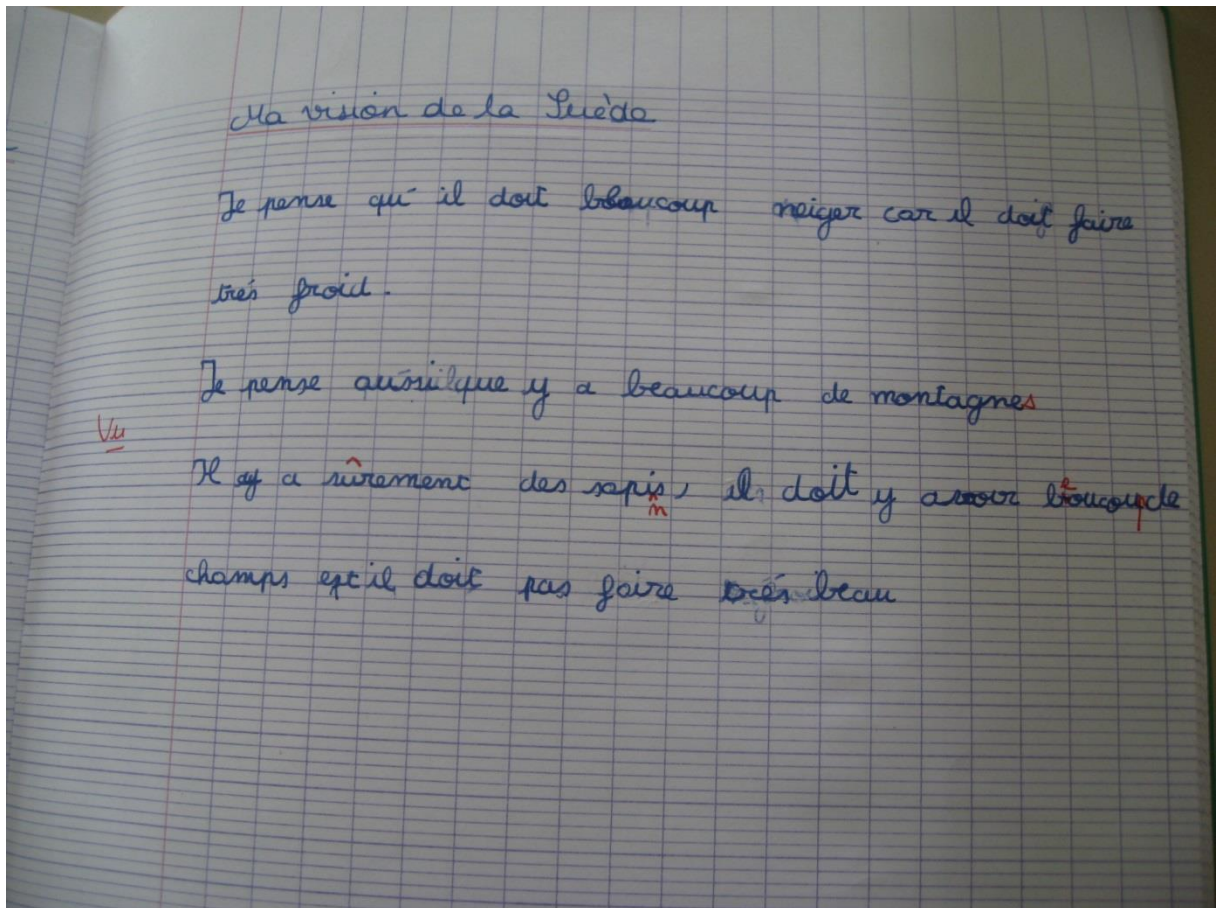 Ma vision de la Suède
Je pense qu'il doit beaucoup neiger car il doit faire
très froid.
Je pense aussi que y a beaucoup de montagnes
Vu
Il y a sûrement des sapins, il doit y avoir beaucoup de
champs et il doit pas faire très beau